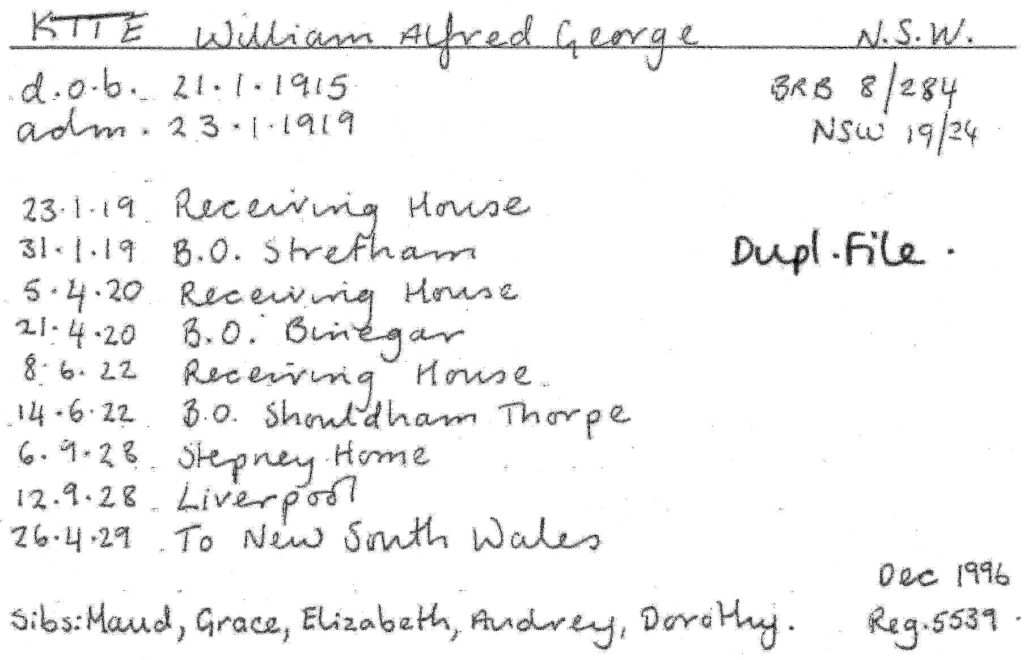 KITE William Alfred George N.S.W.
d.o.b. 21.1.1915 BRB 8/284
adm. 23.1.1919 NSW 19/24
23.1.19 Receiving House
31.1.19 B.O. Stretham Dupl. File.
5.4.20 Receiving House
21.4.20 B.O. Binegar
8.6.22 Receiving House
14.6.22 B.O. Shouldham Thorpe
6.9.28 Stepney Home
12.9.28 Liverpool
26.4.29 To New South Wales
Dec 1996
Sibs: Maud, Grace, Elizabeth, Audrey, Dorothy. Reg. 5539.